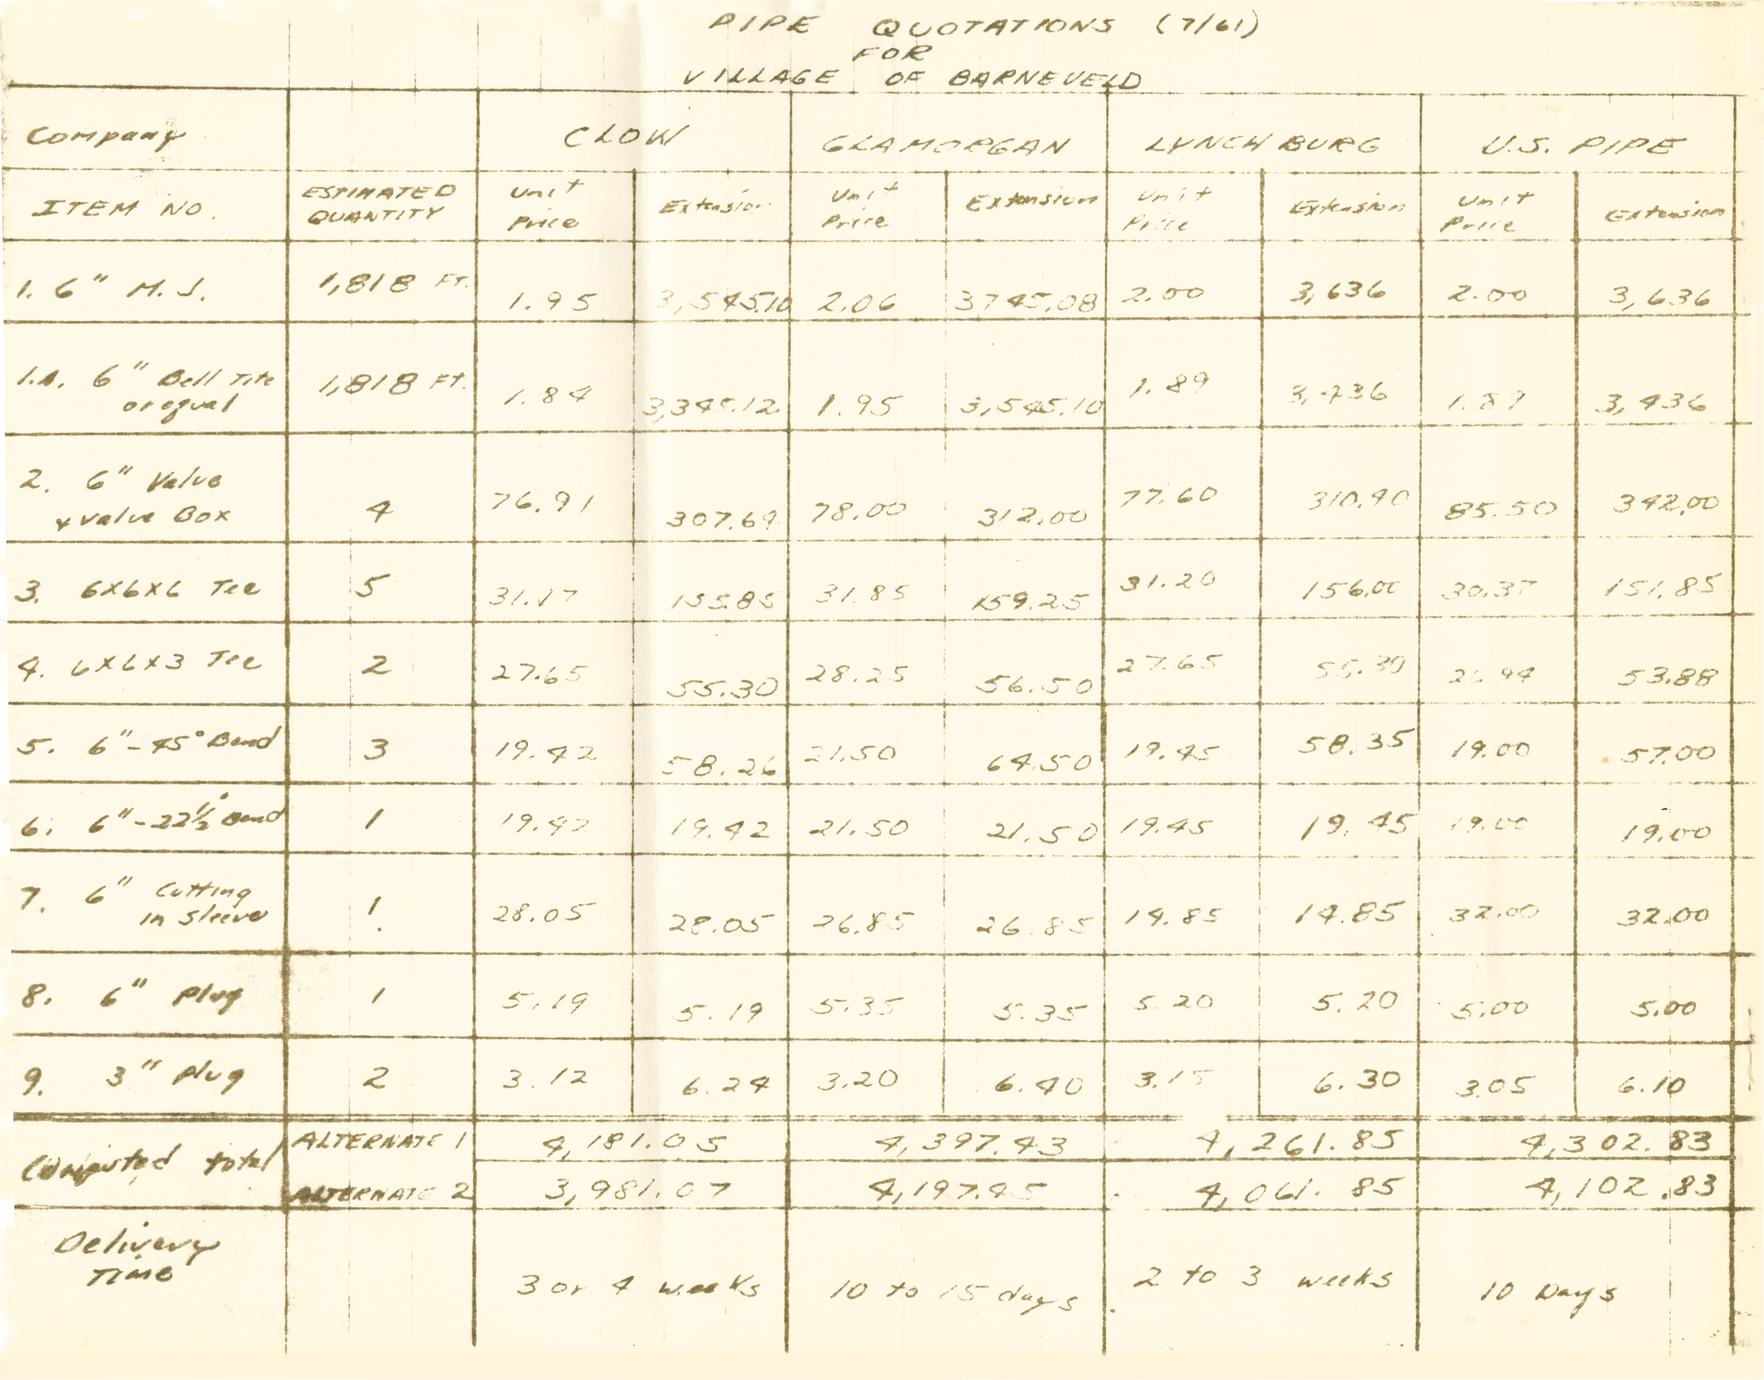 PIPE QUOTATIONS (7/61)
FOR
VILLAGE OF BARNEVELD
Company CLOW GLAMORGAN LYNCHBURG U.S. PIPE
ITEM NO. ESTIMATED QUANTITY Unit Price Extension Unit Price Extension Unit Price Extension Unit Price Extension
1. 6" M.J. 1,818 FT. 1.95 3,545.10 2.06 3745.08 2.00 3,636 2.00 3,636
1.A. 6" Bell Tite or equal 1,818 FT. 1.84 3,345.12 1.95 3,545.10 1.89 3,436 1.89 3,436
2. 6" Valve & Valve Box 4 76.91 307.64 78.00 312.00 77.60 310.40 85.50 342.00
3. 6x6x6 Tee 5 31.17 155.85 31.85 159.25 31.20 156.00 30.37 151.85
4. 6x6x3 Tee 2 27.65 55.30 28.25 56.50 27.65 55.30 26.94 53.88
5. 6"-45° Bend 3 19.42 58.26 21.50 64.50 19.45 58.35 19.00 57.00
6. 6"-22½° Bend 1 19.42 19.42 21.50 21.50 19.45 19.45 19.00 19.00
7. 6" Cutting in sleeve 1 28.05 28.05 26.85 26.85 14.85 14.85 32.00 32.00
8. 6" plug 1 5.19 5.19 5.35 5.35 5.20 5.20 5.00 5.00
9. 3" plug 2 3.12 6.24 3.20 6.40 3.15 6.30 3.05 6.10
Computed total ALTERNATE 1 4,181.05 4,397.43 4,261.85 4,302.83
ALTERNATE 2 3,981.07 4,197.45 4,061.85 4,102.83
Delivery Time 3 or 4 weeks 10 to 15 days 2 to 3 weeks 10 Days